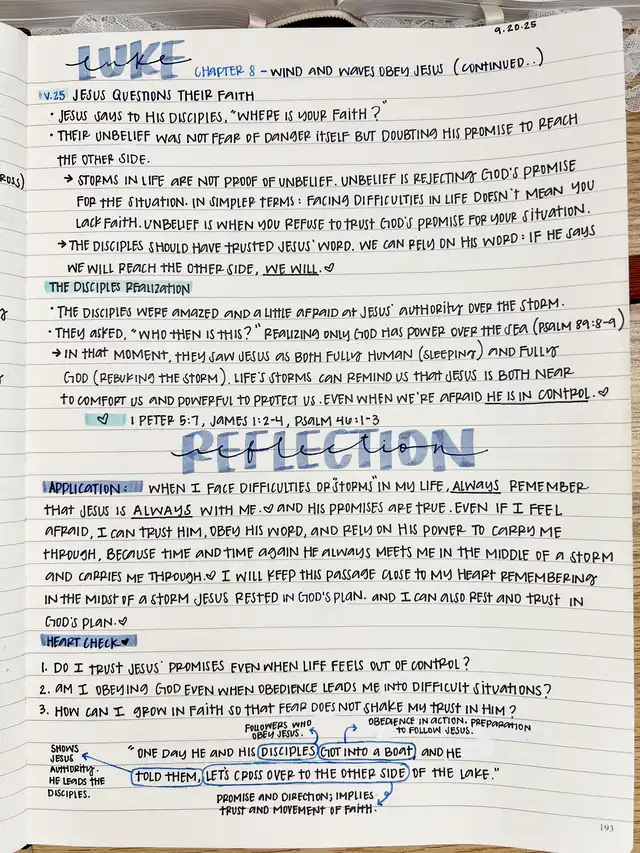 9.20.25
LUKE
luke
CHAPTER 8 - WIND AND WAVES OBEY JESUS (CONTINUED..)
V.25 JESUS QUESTIONS THEIR FAITH
• JESUS SAYS TO HIS DISCIPLES, "WHERE IS YOUR FAITH?"
• THEIR UNBELIEF WAS NOT FEAR OF DANGER ITSELF BUT DOUBTING HIS PROMISE TO REACH
THE OTHER SIDE.
→ STORMS IN LIFE ARE NOT PROOF OF UNBELIEF. UNBELIEF IS REJECTING GOD'S PROMISE
FOR THE SITUATION. IN SIMPLER TERMS: FACING DIFFICULTIES IN LIFE DOESN'T MEAN YOU
LACK FAITH. UNBELIEF IS WHEN YOU REFUSE TO TRUST GOD'S PROMISE FOR YOUR SITUATION.
→ THE DISCIPLES SHOULD HAVE TRUSTED JESUS' WORD. WE CAN RELY ON HIS WORD: IF HE SAYS
WE WILL REACH THE OTHER SIDE, WE WILL.♡
THE DISCIPLES REALIZATION
• THE DISCIPLES WERE AMAZED AND A LITTLE AFRAID AT JESUS' AUTHORITY OVER THE STORM.
• THEY ASKED, "WHO THEN IS THIS?" REALIZING ONLY GOD HAS POWER OVER THE SEA (PSALM 89:8-9)
→ IN THAT MOMENT, THEY SAW JESUS AS BOTH FULLY HUMAN (SLEEPING) AND FULLY
GOD (REBUKING THE STORM). LIFE'S STORMS CAN REMIND US THAT JESUS IS BOTH NEAR
TO COMFORT US AND POWERFUL TO PROTECT US. EVEN WHEN WE'RE AFRAID HE IS IN CONTROL. ♡
♡ 1 PETER 5:7, JAMES 1:2-4, PSALM 46:1-3
REFLECTION
reflection
APPLICATION: WHEN I FACE DIFFICULTIES OR "STORMS" IN MY LIFE, ALWAYS REMEMBER
THAT JESUS IS ALWAYS WITH ME.♡ AND HIS PROMISES ARE TRUE. EVEN IF I FEEL
AFRAID, I CAN TRUST HIM, OBEY HIS WORD, AND RELY ON HIS POWER TO CARRY ME
THROUGH, BECAUSE TIME AND TIME AGAIN HE ALWAYS MEETS ME IN THE MIDDLE OF A STORM
AND CARRIES ME THROUGH.♡ I WILL KEEP THIS PASSAGE CLOSE TO MY HEART REMEMBERING
IN THE MIDST OF A STORM JESUS RESTED IN GOD'S PLAN. AND I CAN ALSO REST AND TRUST IN
GOD'S PLAN.♡
HEART CHECK♥
1. DO I TRUST JESUS' PROMISES EVEN WHEN LIFE FEELS OUT OF CONTROL?
2. AM I OBEYING GOD EVEN WHEN OBEDIENCE LEADS ME INTO DIFFICULT SITUATIONS?
3. HOW CAN I GROW IN FAITH SO THAT FEAR DOES NOT SHAKE MY TRUST IN HIM?
FOLLOWERS WHO
OBEY JESUS.
OBEDIENCE IN ACTION, PREPARATION
TO FOLLOW JESUS.
SHOWS
JESUS
AUTHORITY.
HE LEADS THE
DISCIPLES.
"ONE DAY HE AND HIS DISCIPLES GOT INTO A BOAT AND HE
TOLD THEM, LET'S CROSS OVER TO THE OTHER SIDE OF THE LAKE."
PROMISE AND DIRECTION; IMPLIES
TRUST AND MOVEMENT OF FAITH.
193
ROSS)